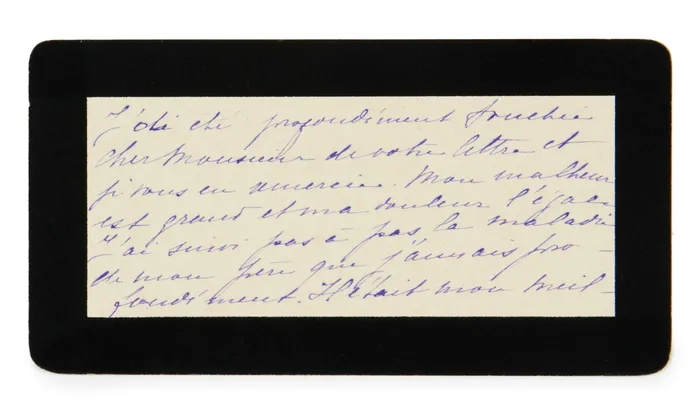 J'ai été profondément touchée
cher Monsieur de votre lettre et
je vous en remercie. Mon malheur
est grand et ma douleur l'égale
J'ai suivi pas à pas la maladie
de mon père que j'aimais pro-
fondément. Il était mon meil-